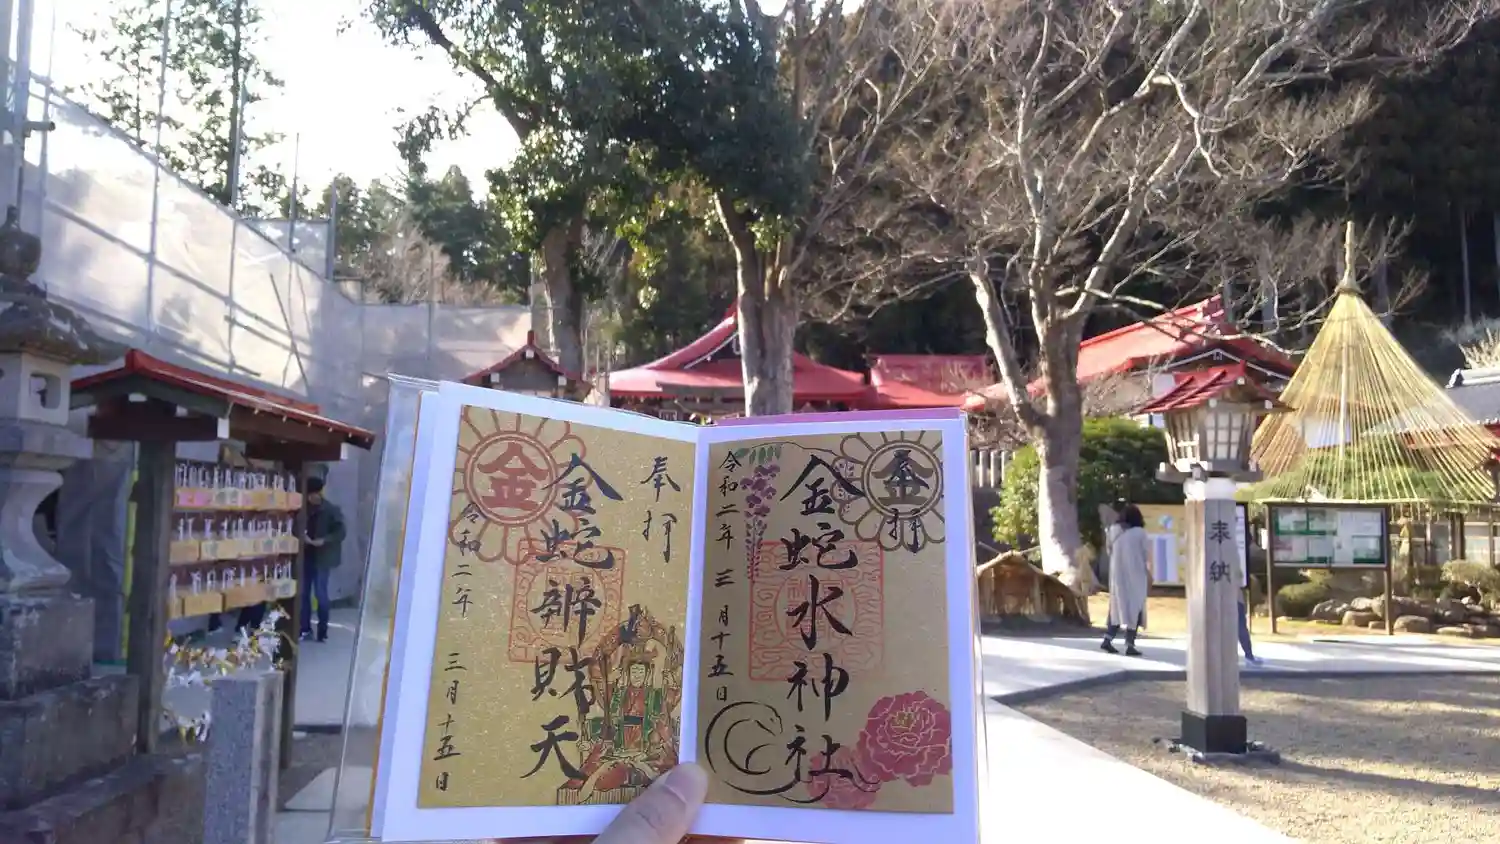 奉拝
金
金蛇水神社
令和二年 三月十五日
奉拝
金
金蛇辨財天
令和二年 三月十五日
奉納